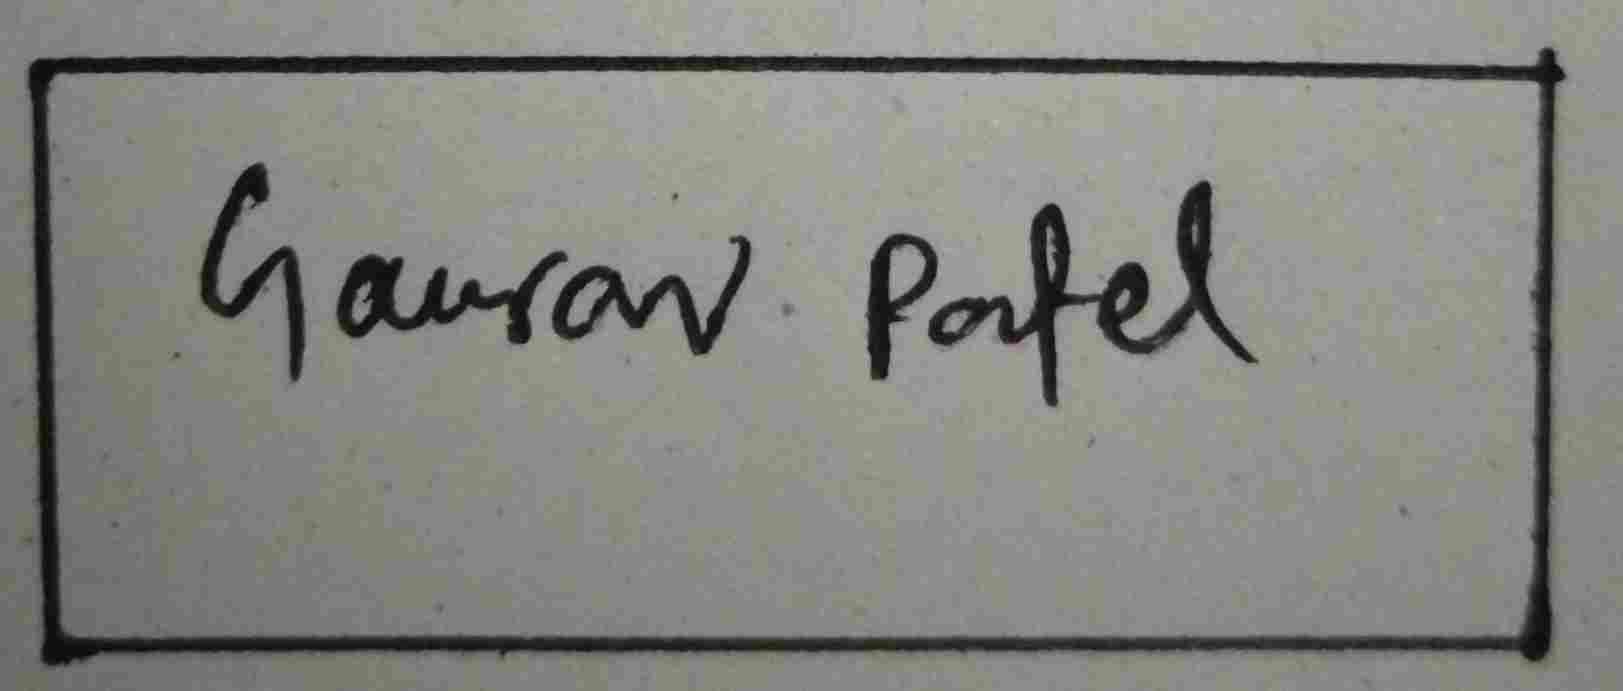 Gaurav Patel